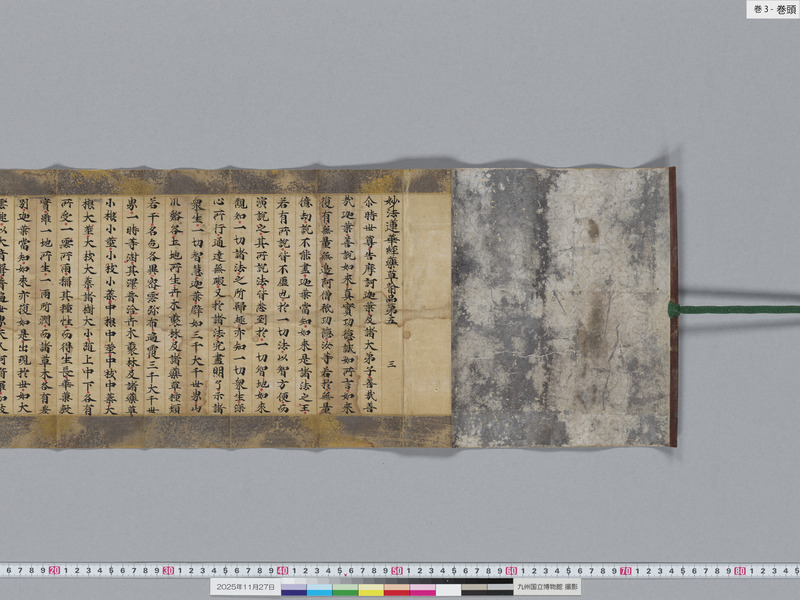 巻 3 - 巻頭
妙法蓮華經藥草喩品第五 三
尒時世尊告摩訶迦葉及諸大弟子善哉善
哉迦葉善說如來真實功德誠如所言如來
復有無量無邊阿僧祇功德汝等若於無量
億劫說不能盡迦葉當知如來是諸法之王
若有所說皆不虛也於一切法以智方便而
演說之其所說法皆悉到於一切智地如來
觀知一切諸法之所歸趣亦知一切衆生深
心所行通達無㝵又於諸法究盡明了示諸
衆生一切智慧迦葉譬如三千大千世界山
川谿谷土地所生卉木藂林及諸藥草種類
若干名色各異密雲弥布遍覆三千大千世
界一時等澍其澤普洽卉木藂林及諸藥草
小根小莖小枝小葉中根中莖中枝中葉大
根大莖大枝大葉諸樹大小隨上中下各有
所受一雲所雨稱其種性而得生長華菓敷
實雖一地所生一雨所潤而諸草木各有差
別迦葉當知如來亦復如是出現於世如大
6 7 8 9 20 1 2 3 4 5 6 7 8 9 30 1 2 3 4 5 6 7 8 9 40 1 2 3 4 5 6 7 8 9 50 1 2 3 4 5 6 7 8 9 60 1 2 3 4 5 6 7 8 9 70 1 2 3 4 5 6 7 8 9 80 1 2 3 4 5
2025年11月27日
九州国立博物館 撮影